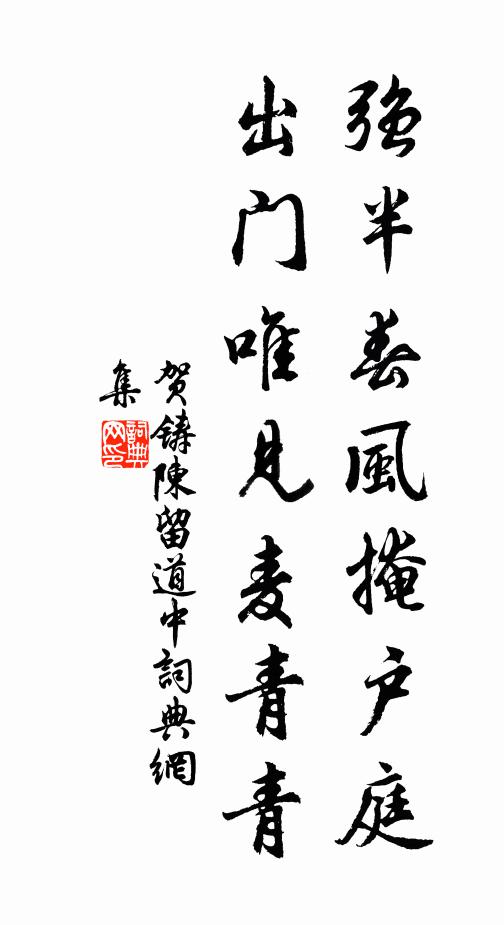 强半春風掩户庭
出门唯見麦青青
贺鑄陳留道中詞典網
集
詞典
网印